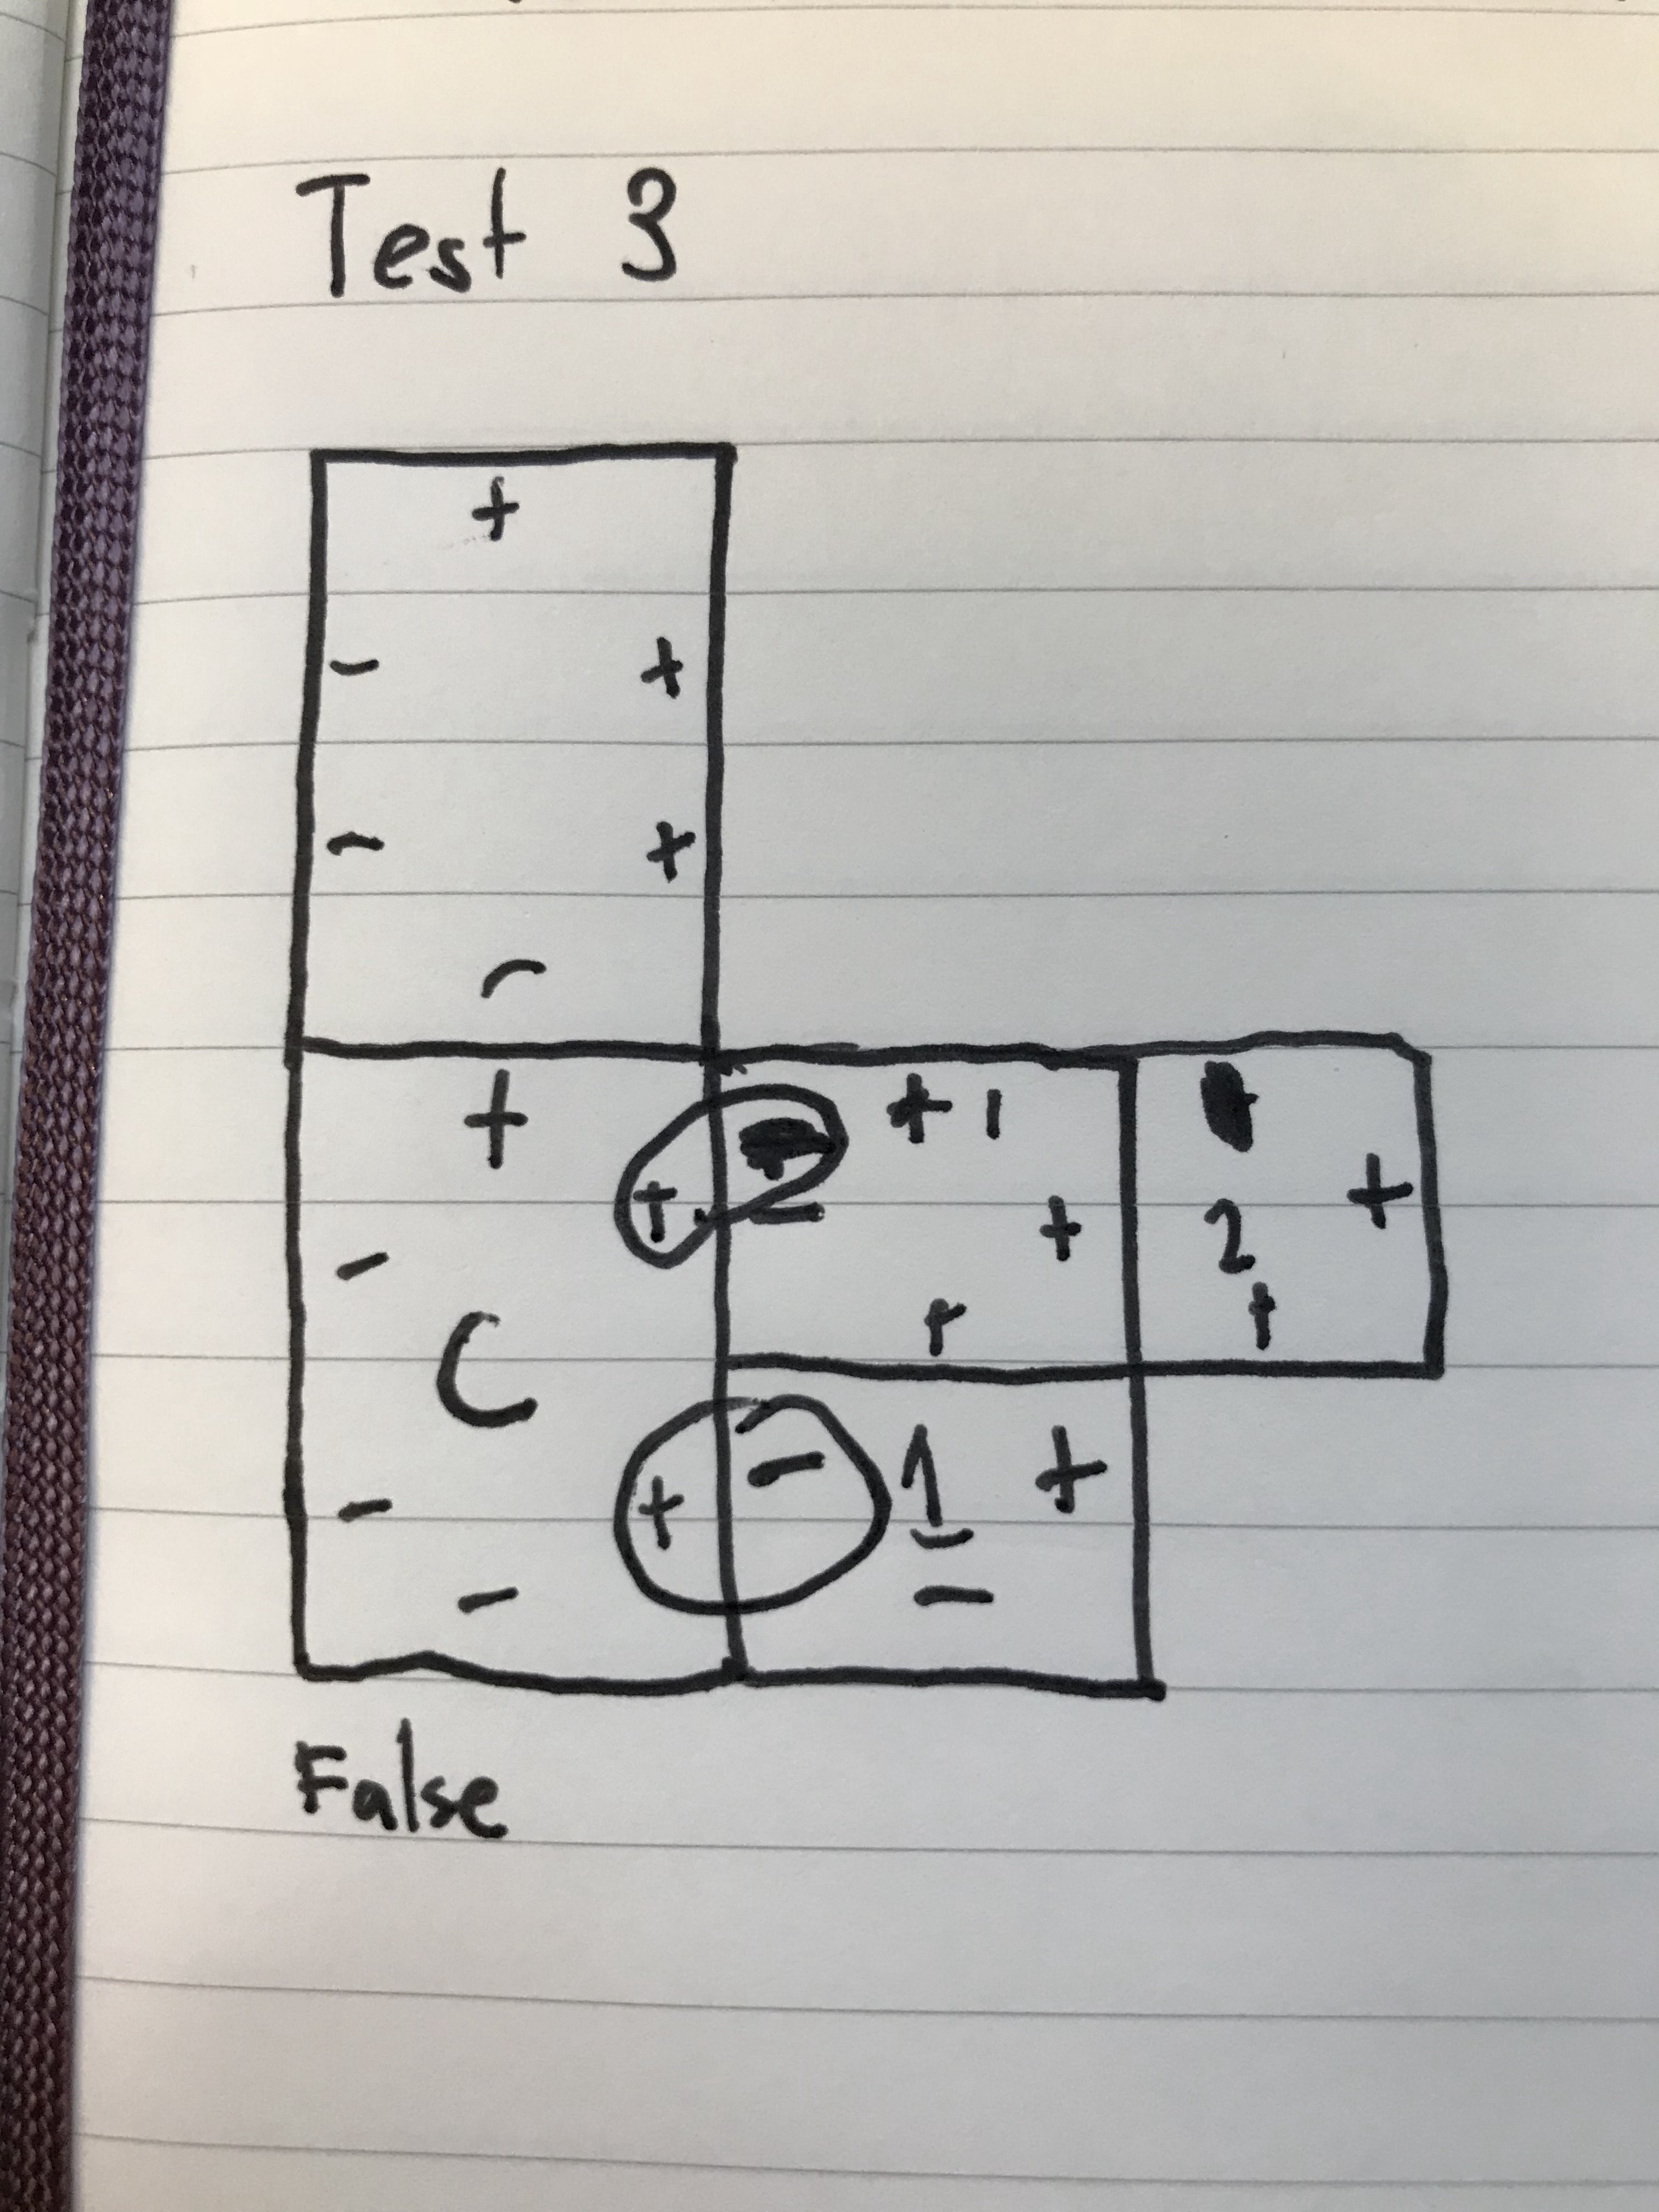 Test 3
+
- +
- +
-
+ + 1
+ - +
2
- + +
C
- + - 1 +
- -
False